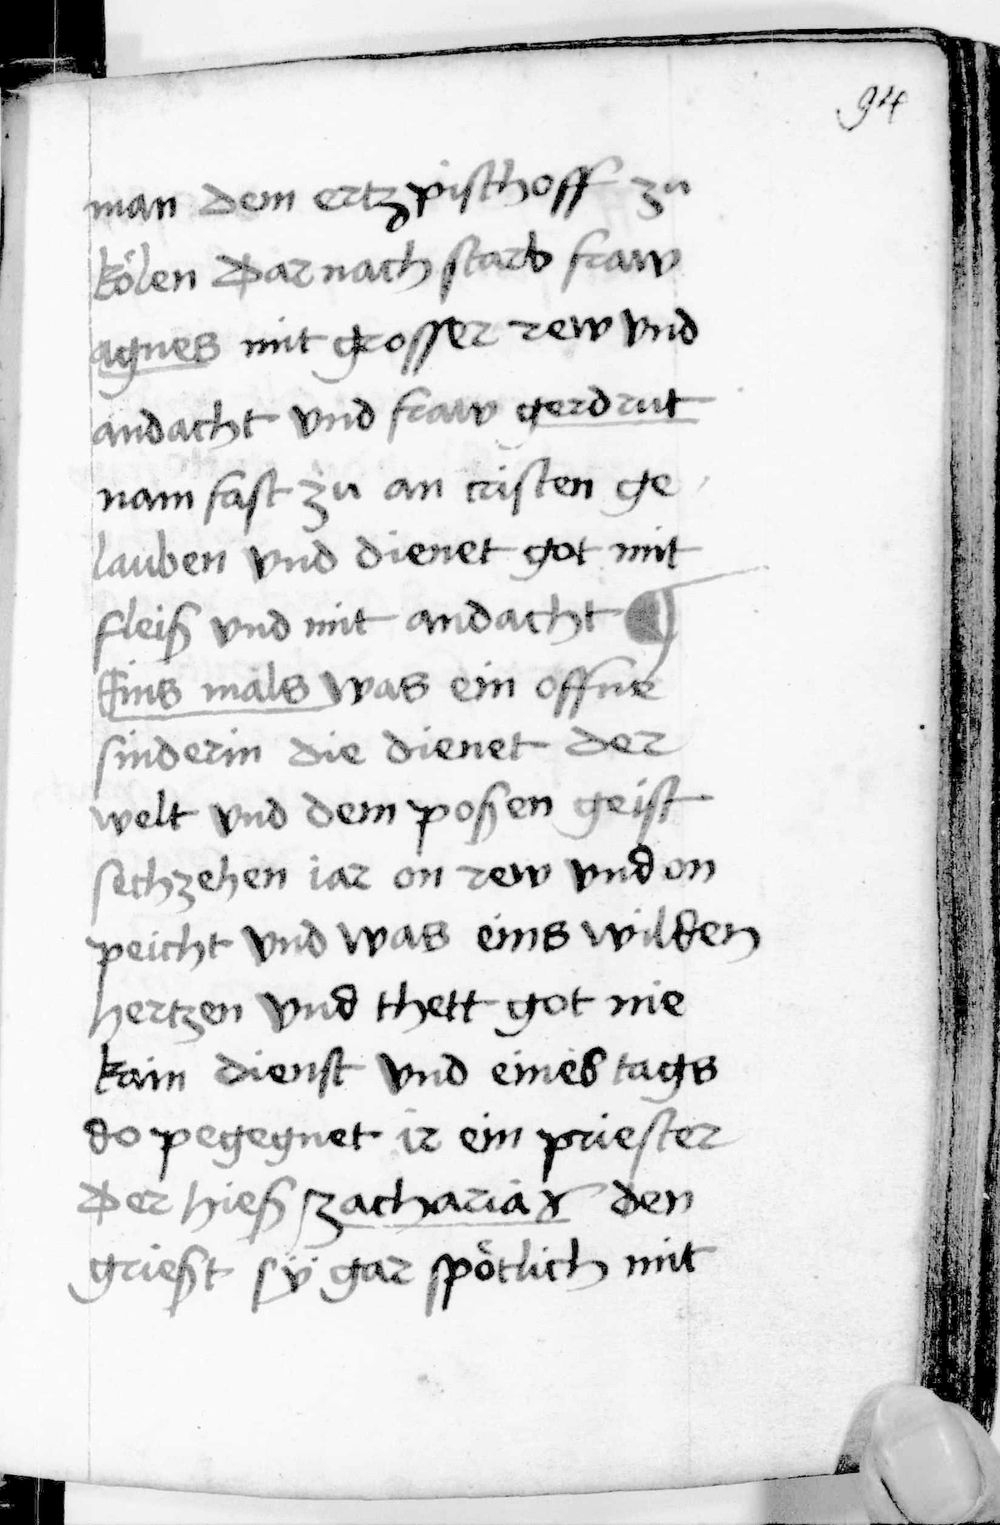 94
man dem ertzpischoff zu
kölen Darnach starb fraw
agnes mit grosser rew vnd
andacht vnd fraw gerdrut
nam fast zu an cristen ge
lauben vnd dienet got mit
fleiß vnd mit andacht
Eins mals was ein offne
sinderin die dienet der
welt vnd dem poßen geist
sechzehen iar on rew vnd on
peicht vnd was eins wilden
hertzen vnd thett got nie
kain dienst vnd eines tags
do pegegnet ir ein priester
Der hieß zacharias den
grießt sÿ gar spötlich mit